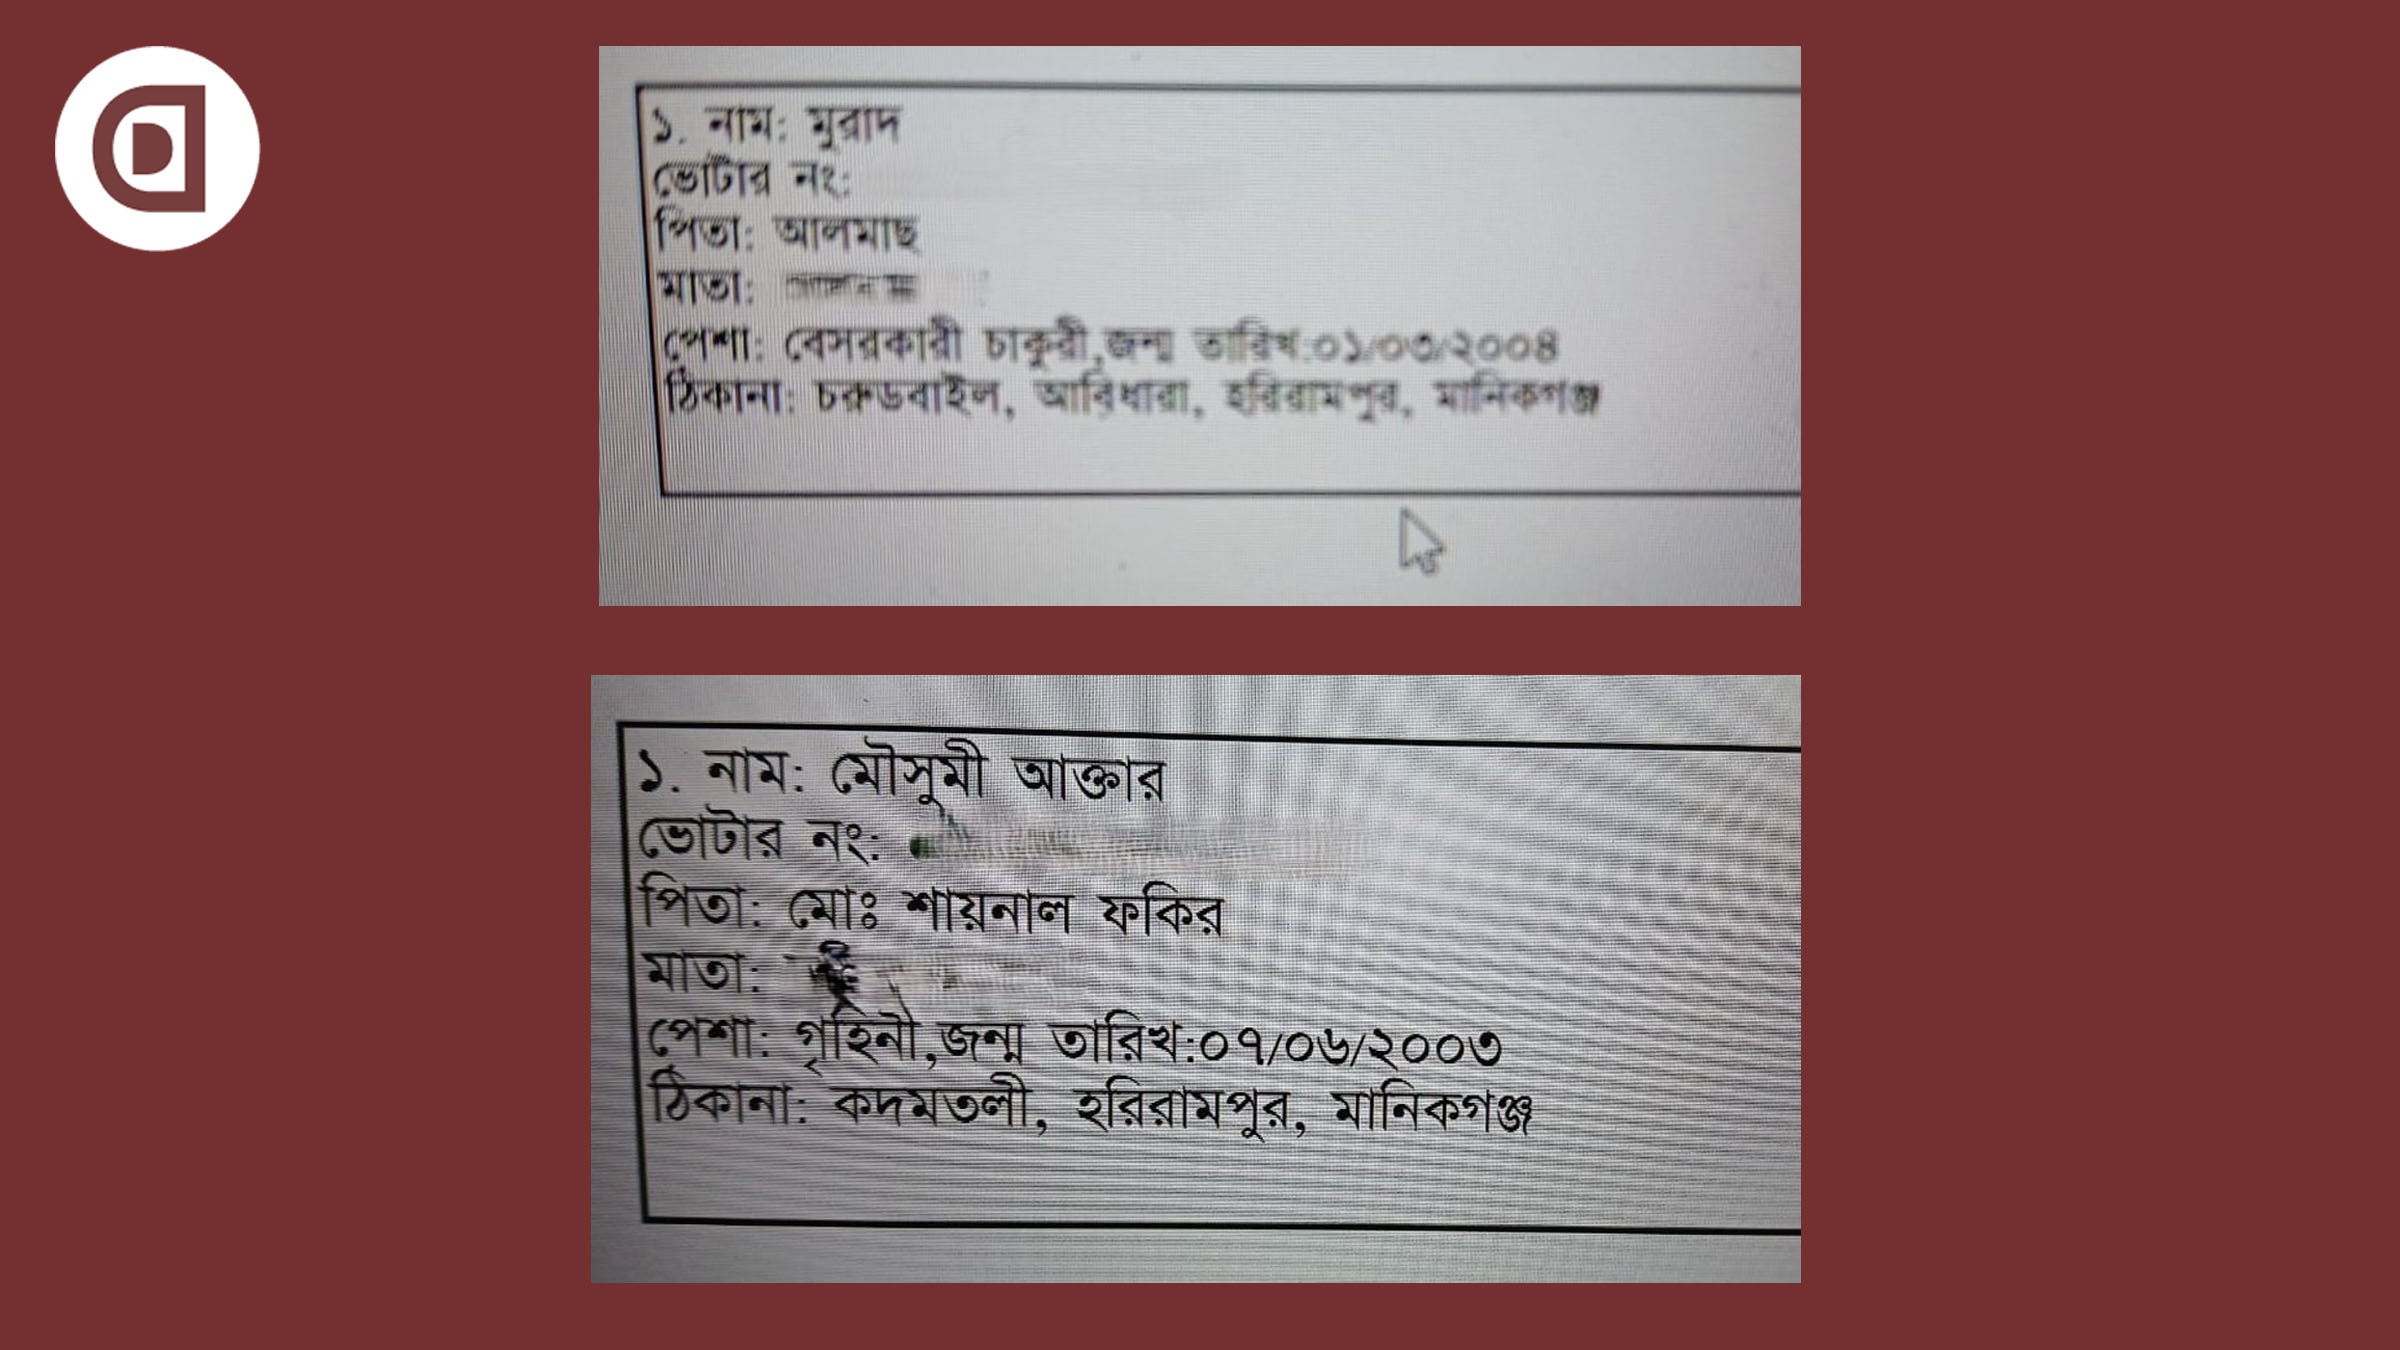 ১. নাম: মুরাদ
ভোটার নং:
পিতা: আলমাছ
মাতা:
পেশা: বেসরকারী চাকুরী,জন্ম তারিখ:০১/০৩/২০০৪
ঠিকানা: চরুডবাইল, আরিধারা, হরিরামপুর, মানিকগঞ্জ
১. নাম: মৌসুমী আক্তার
ভোটার নং:
পিতা: মোঃ শায়নাল ফকির
মাতা:
পেশা: গৃহিনী,জন্ম তারিখ:০৭/০৬/২০০৩
ঠিকানা: কদমতলী, হরিরামপুর, মানিকগঞ্জ